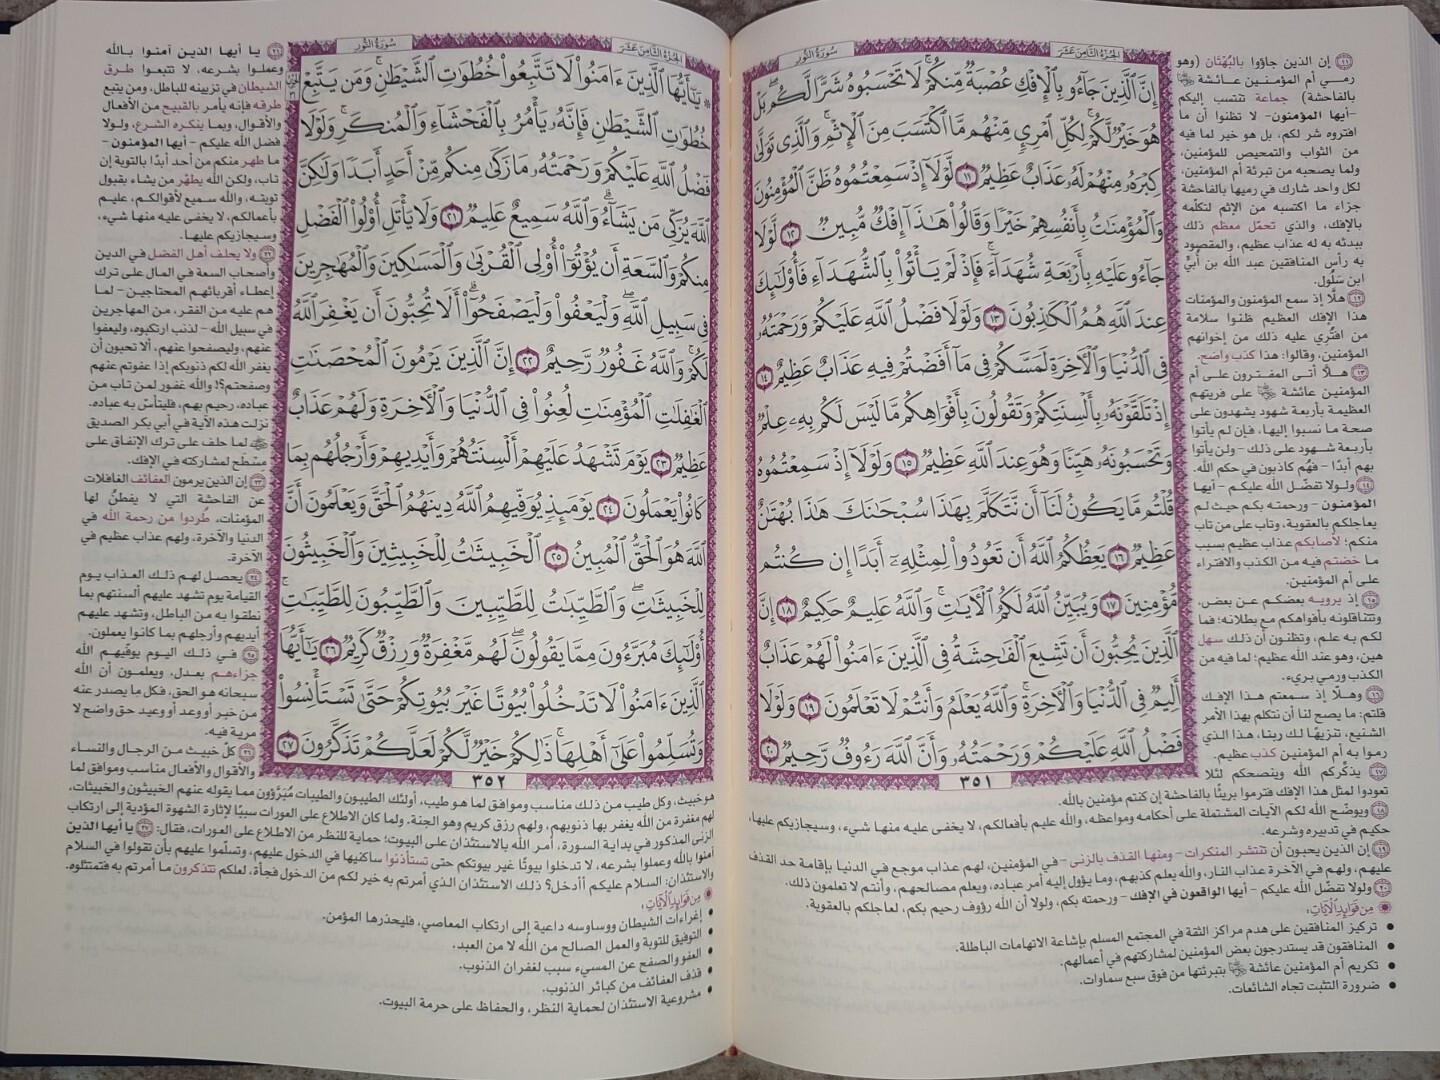 الجزء الثامن عشر
سورة النور
إِنَّ ٱلَّذِينَ جَآءُو بِٱلْإِفْكِ عُصْبَةٌ مِّنكُمْ ۚ لَا تَحْسَبُوهُ شَرًّا لَّكُم ۖ بَلْ
هُوَ خَيْرٌ لَّكُمْ ۚ لِكُلِّ ٱمْرِئٍ مِّنْهُم مَّا ٱكْتَسَبَ مِنَ ٱلْإِثْمِ ۚ وَٱلَّذِى تَوَلَّىٰ
كِبْرَهُۥ مِنْهُمْ لَهُۥ عَذَابٌ عَظِيمٌ ١١ لَّوْلَآ إِذْ سَمِعْتُمُوهُ ظَنَّ ٱلْمُؤْمِنُونَ
وَٱلْمُؤْمِنَٰتُ بِأَنفُسِهِمْ خَيْرًا وَقَالُوا۟ هَٰذَآ إِفْكٌ مُّبِينٌ ١٢ لَّوْلَا
جَآءُو عَلَيْهِ بِأَرْبَعَةِ شُهَدَآءَ ۚ فَإِذْ لَمْ يَأْتُوا۟ بِٱلشُّهَدَآءِ فَأُو۟لَٰٓئِكَ
عِندَ ٱللَّهِ هُمُ ٱلْكَٰذِبُونَ ١٣ وَلَوْلَا فَضْلُ ٱللَّهِ عَلَيْكُمْ وَرَحْمَتُهُۥ
فِى ٱلدُّنْيَا وَٱلْءَاخِرَةِ لَمَسَّكُمْ فِى مَآ أَفَضْتُمْ فِيهِ عَذَابٌ عَظِيمٌ ١٤
إِذْ تَلَقَّوْنَهُۥ بِأَلْسِنَتِكُمْ وَتَقُولُونَ بِأَفْوَاهِكُم مَّا لَيْسَ لَكُم بِهِۦ عِلْمٌ
وَتَحْسَبُونَهُۥ هَيِّنًا وَهُوَ عِندَ ٱللَّهِ عَظِيمٌ ١٥ وَلَوْلَآ إِذْ سَمِعْتُمُوهُ
قُلْتُم مَّا يَكُونُ لَنَآ أَن نَّتَكَلَّمَ بِهَٰذَا سُبْحَٰنَكَ هَٰذَا بُهْتَٰنٌ
عَظِيمٌ ١٦ يَعِظُكُمُ ٱللَّهُ أَن تَعُودُوا۟ لِمِثْلِهِۦٓ أَبَدًا إِن كُنتُم
مُّؤْمِنِينَ ١٧ وَيُبَيِّنُ ٱللَّهُ لَكُمُ ٱلْءَايَٰتِ ۚ وَٱللَّهُ عَلِيمٌ حَكِيمٌ ١٨ إِنَّ
ٱلَّذِينَ يُحِبُّونَ أَن تَشِيعَ ٱلْفَٰحِشَةُ فِى ٱلَّذِينَ ءَامَنُوا۟ لَهُمْ عَذَابٌ
أَلِيمٌ فِى ٱلدُّنْيَا وَٱلْءَاخِرَةِ ۚ وَٱللَّهُ يَعْلَمُ وَأَنتُمْ لَا تَعْلَمُونَ ١٩ وَلَوْلَا
فَضْلُ ٱللَّهِ عَلَيْكُمْ وَرَحْمَتُهُۥ وَأَنَّ ٱللَّهَ رَءُوفٌ رَّحِيمٌ ٢٠
٣٥١
١١ إن الذين جاؤوا بالبُهْتَان (وهو
رمي أم المؤمنين عائشة
بالفاحشة) جماعة تنتسب إليكم
-أيها المؤمنون- لا تظنوا أن ما
افتروه شر لكم، بل هو خير لما فيه
من الثواب والتمحيص للمؤمنين،
ولما يصحبه من تبرئة أم المؤمنين،
لكل واحد شارك في رميها بالفاحشة
جزاء ما اكتسبه من الإثم لتكلُّمه
بالإفك، والذي تحمّل معظم ذلك
ببدئه به له عذاب عظيم، والمقصود
به رأس المنافقين عبد الله بن أُبيّ
ابن سَلُول.
١٢ هلَّا إذ سمع المؤمنون والمؤمنات
هذا الإفك العظيم ظنوا سلامة
من افتُرِي عليه ذلك من إخوانهم
المؤمنين، وقالوا: هذا كذب واضح.
١٣ هلَّا أتى المفترون على أم
المؤمنين عائشة على فريتهم
العظيمة بأربعة شهود يشهدون على
صحة ما نسبوا إليها، فإن لم يأتوا
بأربعة شهود على ذلك - ولن يأتوا
بهم أبدًا - فهُم كاذبون في حكم الله.
١٤ ولولا تفضّل الله عليكم - أيها
المؤمنون - ورحمته بكم حيث لم
يعاجلكم بالعقوبة، وتاب على من تاب
منكم؛ لأصابكم عذاب عظيم بسبب
ما خضتم فيه من الكذب والافتراء
على أم المؤمنين.
١٥ إذ يرويه بعضكم عن بعض،
وتتناقلونه بأفواهكم مع بطلانه؛ فما
لكم به علم، وتظنون أن ذلك سهل
هين، وهو عند الله عظيم؛ لما فيه من
الكذب ورمي بريء.
١٦ وهلَّا إذ سمعتم هذا الإفك
قلتم: ما يصح لنا أن نتكلم بهذا الأمر
الشنيع، تنزيهًا لك ربنا، هذا الذي
رموا به أم المؤمنين كذب عظيم.
١٧ يذكّركم الله وينصحكم لئلا
تعودوا لمثل هذا الإفك فترموا بريئًا بالفاحشة إن كنتم مؤمنين بالله.
١٨ ويوضّح الله لكم الآيات المشتملة على أحكامه ومواعظه، والله عليم بأفعالكم، لا يخفى عليه منها شيء، وسيجازيكم عليها،
حكيم في تدبيره وشرعه.
١٩ إن الذين يحبون أن تنتشر المنكرات - ومنها القذف بالزنى - في المؤمنين، لهم عذاب موجع في الدنيا بإقامة حد القذف
عليهم، ولهم في الآخرة عذاب النار، والله يعلم كذبهم، وما يؤول إليه أمر عباده، ويعلم مصالحهم، وأنتم لا تعلمون ذلك.
٢٠ ولولا تفضّل الله عليكم - أيها الواقعون في الإفك - ورحمته بكم، ولولا أن الله رؤوف رحيم بكم، لعاجلكم بالعقوبة.
من فوائد الآيات:
• تركيز المنافقين على هدم مراكز الثقة في المجتمع المسلم بإشاعة الاتهامات الباطلة.
• المنافقون قد يستدرجون بعض المؤمنين لمشاركتهم في أعمالهم.
• تكريم أم المؤمنين عائشة بتبرئتها من فوق سبع سماوات.
• ضرورة التثبت تجاه الشائعات.
الجزء الثامن عشر
سورة النور
۞ يَٰٓأَيُّهَا ٱلَّذِينَ ءَامَنُوا۟ لَا تَتَّبِعُوا۟ خُطُوَٰتِ ٱلشَّيْطَٰنِ ۚ وَمَن يَتَّبِعْ
خُطُوَٰتِ ٱلشَّيْطَٰنِ فَإِنَّهُۥ يَأْمُرُ بِٱلْفَحْشَآءِ وَٱلْمُنكَرِ ۚ وَلَوْلَا
فَضْلُ ٱللَّهِ عَلَيْكُمْ وَرَحْمَتُهُۥ مَا زَكَىٰ مِنكُم مِّنْ أَحَدٍ أَبَدًا وَلَٰكِنَّ
ٱللَّهَ يُزَكِّى مَن يَشَآءُ ۗ وَٱللَّهُ سَمِيعٌ عَلِيمٌ ٢١ وَلَا يَأْتَلِ أُو۟لُوا۟ ٱلْفَضْلِ
مِنكُمْ وَٱلسَّعَةِ أَن يُؤْتُوٓا۟ أُو۟لِى ٱلْقُرْبَىٰ وَٱلْمَسَٰكِينَ وَٱلْمُهَٰجِرِينَ
فِى سَبِيلِ ٱللَّهِ ۖ وَلْيَعْفُوا۟ وَلْيَصْفَحُوٓا۟ ۗ أَلَا تُحِبُّونَ أَن يَغْفِرَ ٱللَّهُ
لَكُمْ ۗ وَٱللَّهُ غَفُورٌ رَّحِيمٌ ٢٢ إِنَّ ٱلَّذِينَ يَرْمُونَ ٱلْمُحْصَنَٰتِ
ٱلْغَٰفِلَٰتِ ٱلْمُؤْمِنَٰتِ لُعِنُوا۟ فِى ٱلدُّنْيَا وَٱلْءَاخِرَةِ وَلَهُمْ عَذَابٌ
عَظِيمٌ ٢٣ يَوْمَ تَشْهَدُ عَلَيْهِمْ أَلْسِنَتُهُمْ وَأَيْدِيهِمْ وَأَرْجُلُهُم بِمَا
كَانُوا۟ يَعْمَلُونَ ٢٤ يَوْمَئِذٍ يُوَفِّيهِمُ ٱللَّهُ دِينَهُمُ ٱلْحَقَّ وَيَعْلَمُونَ أَنَّ
ٱللَّهَ هُوَ ٱلْحَقُّ ٱلْمُبِينُ ٢٥ ٱلْخَبِيثَٰتُ لِلْخَبِيثِينَ وَٱلْخَبِيثُونَ
لِلْخَبِيثَٰتِ ۖ وَٱلطَّيِّبَٰتُ لِلطَّيِّبِينَ وَٱلطَّيِّبُونَ لِلطَّيِّبَٰتِ ۚ
أُو۟لَٰٓئِكَ مُبَرَّءُونَ مِمَّا يَقُولُونَ ۖ لَهُم مَّغْفِرَةٌ وَرِزْقٌ كَرِيمٌ ٢٦ يَٰٓأَيُّهَا
ٱلَّذِينَ ءَامَنُوا۟ لَا تَدْخُلُوا۟ بُيُوتًا غَيْرَ بُيُوتِكُمْ حَتَّىٰ تَسْتَأْنِسُوا۟
وَتُسَلِّمُوا۟ عَلَىٰٓ أَهْلِهَا ۚ ذَٰلِكُمْ خَيْرٌ لَّكُمْ لَعَلَّكُمْ تَذَكَّرُونَ ٢٧
٣٥٢
٢١ يا أيها الذين آمنوا بالله
وعملوا بشرعه، لا تتبعوا طرق
الشيطان في تزيينه للباطل، ومن يتبع
طرقه فإنه يأمر بالقبيح من الأفعال
والأقوال، وبما ينكره الشرع، ولولا
فضل الله عليكم - أيها المؤمنون -
ما طهر منكم من أحد أبدًا بالتوبة إن
تاب، ولكن الله يطهّر من يشاء بقبول
توبته، والله سميع لأقوالكم، عليم
بأعمالكم، لا يخفى عليه منها شيء،
وسيجازيكم عليها.
٢٢ ولا يحلف أهل الفضل في الدين
وأصحاب السعة في المال على ترك
إعطاء أقربائهم المحتاجين - لما
هم عليه من الفقر، من المهاجرين
في سبيل الله - لذنب ارتكبوه، وليعفوا
عنهم، وليصفحوا عنهم، ألا تحبون أن
يغفر الله لكم ذنوبكم إذا عفوتم عنهم
وصفحتم؟! والله غفور لمن تاب من
عباده، رحيم بهم، فليتأسّ به عباده.
نزلت هذه الآية في أبي بكر الصديق
لما حلف على ترك الإنفاق على
مِسْطَح لمشاركته في الإفك.
٢٣ إن الذين يرمون العفائف الغافلات
عن الفاحشة التي لا يفطنّ لها
المؤمنات، طُردوا من رحمة الله في
الدنيا والآخرة، ولهم عذاب عظيم في
الآخرة.
٢٤ يحصل لهم ذلك العذاب يوم
القيامة يوم تشهد عليهم ألسنتهم بما
نطقوا به من الباطل، وتشهد عليهم
أيديهم وأرجلهم بما كانوا يعملون.
٢٥ في ذلك اليوم يوفّيهم الله
جزاءهم بعدل، ويعلمون أن الله
سبحانه هو الحق، فكل ما يصدر عنه
من خبر أو وعد أو وعيد حق واضح لا
مرية فيه.
٢٦ كلّ خبيث من الرجال والنساء
والأقوال والأفعال مناسب وموافق لما
هو خبيث، وكل طيب من ذلك مناسب وموافق لما هو طيب، أولئك الطيبون والطيبات مُبَرَّؤون مما يقوله عنهم الخبيثون والخبيثات،
لهم مغفرة من الله يغفر بها ذنوبهم، ولهم رزق كريم وهو الجنة. ولما كان الاطلاع على العورات سببًا لإثارة الشهوة المؤدية إلى ارتكاب
الزنى المذكور في بداية السورة، أمر الله بالاستئذان على البيوت؛ حماية للنظر من الاطلاع على العورات، فقال: ٢٧ يا أيها الذين
آمنوا بالله وعملوا بشرعه، لا تدخلوا بيوتًا غير بيوتكم حتى تستأذنوا ساكنيها في الدخول عليهم، وتسلّموا عليهم بأن تقولوا في السلام
والاستئذان: السلام عليكم أأدخل؟ ذلك الاستئذان الذي أمرتم به خير لكم من الدخول فجأة، لعلكم تتذكرون ما أمرتم به فتمتثلوه.
من فوائد الآيات:
• إغراءات الشيطان ووساوسه داعية إلى ارتكاب المعاصي، فليحذرها المؤمن.
• التوفيق للتوبة والعمل الصالح من الله لا من العبد.
• العفو والصفح عن المسيء سبب لغفران الذنوب.
• قذف العفائف من كبائر الذنوب.
• مشروعية الاستئذان لحماية النظر، والحفاظ على حرمة البيوت.